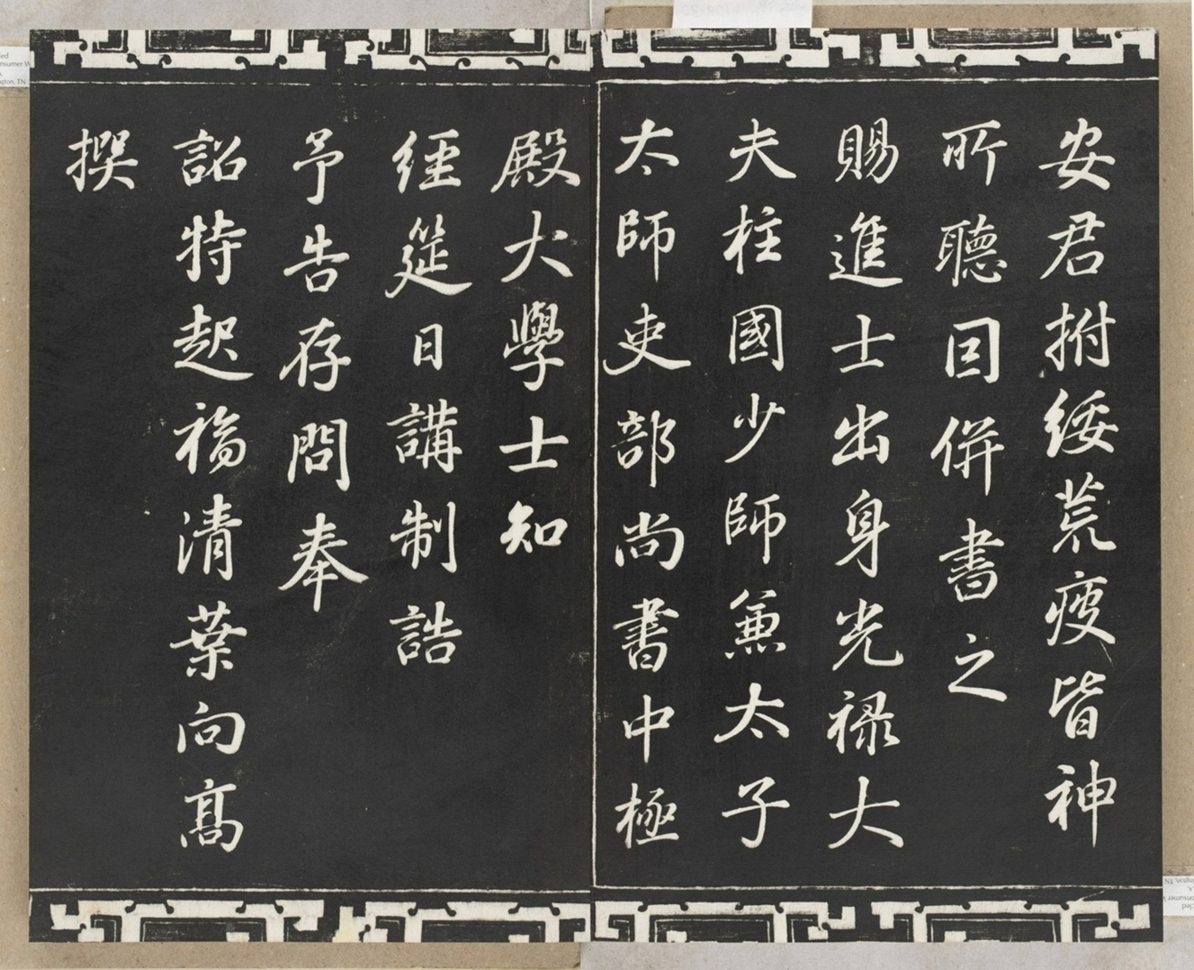 安君拊綏荒疫皆神
所聽因併書之
賜進士出身光禄大
夫柱國少師兼太子
太師吏部尚書中極
殿大學士知
經筵日講制誥
予告存問奉
詔特起福清葉向髙
撰